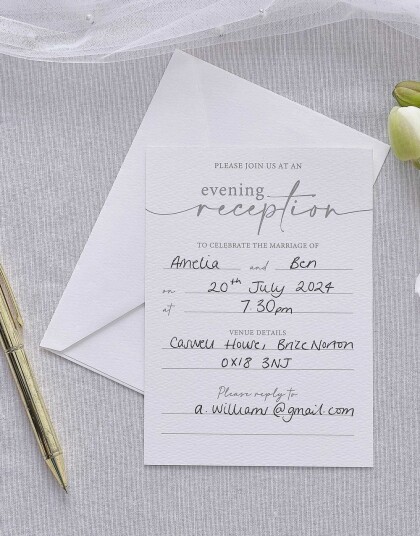 PLEASE JOIN US AT AN
evening
reception
TO CELEBRATE THE MARRIAGE OF
Amelia and Ben
on 20th July 2024
at 7 30pm
VENUE DETAILS
Caswell House, Brize Norton
OX18 3NJ
Please reply to
a.william@gmail.com